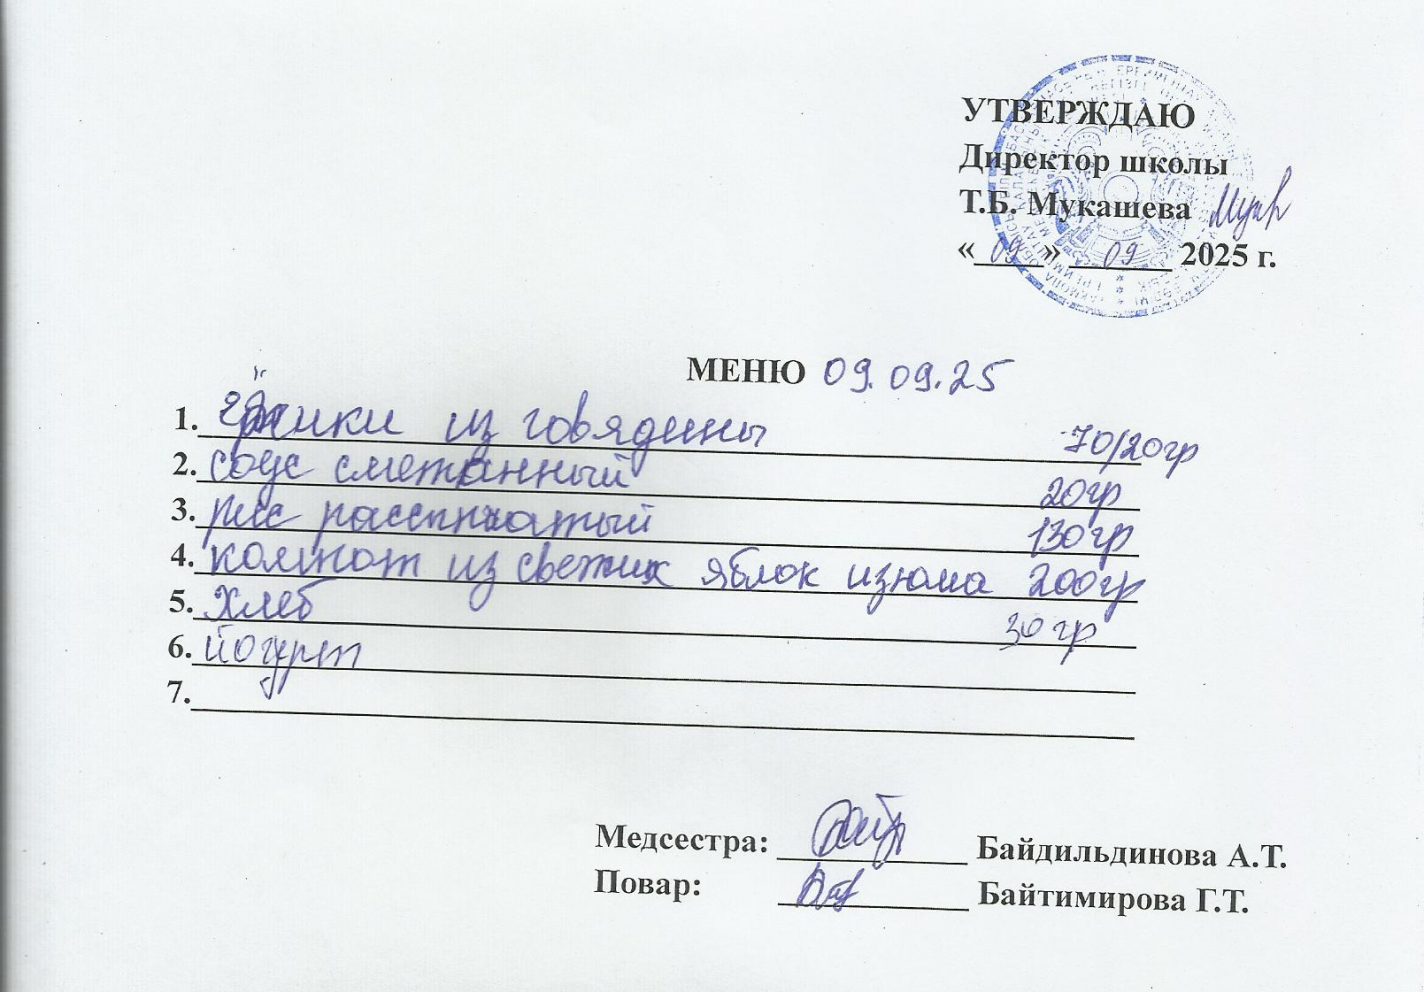 УТВЕРЖДАЮ
Директор школы
Т.Б. Мукашева
«09» 09 2025 г.
МЕНЮ 09.09.25
1. ёжики из говядины 70/20гр
2. соус сметанный 20гр
3. рис рассыпчатый 130гр
4. компот из свежих яблок изюма 200гр
5. хлеб 30 гр
6. йогурт
7.
Медсестра: Байдильдинова А.Т.
Повар: Байтимирова Г.Т.